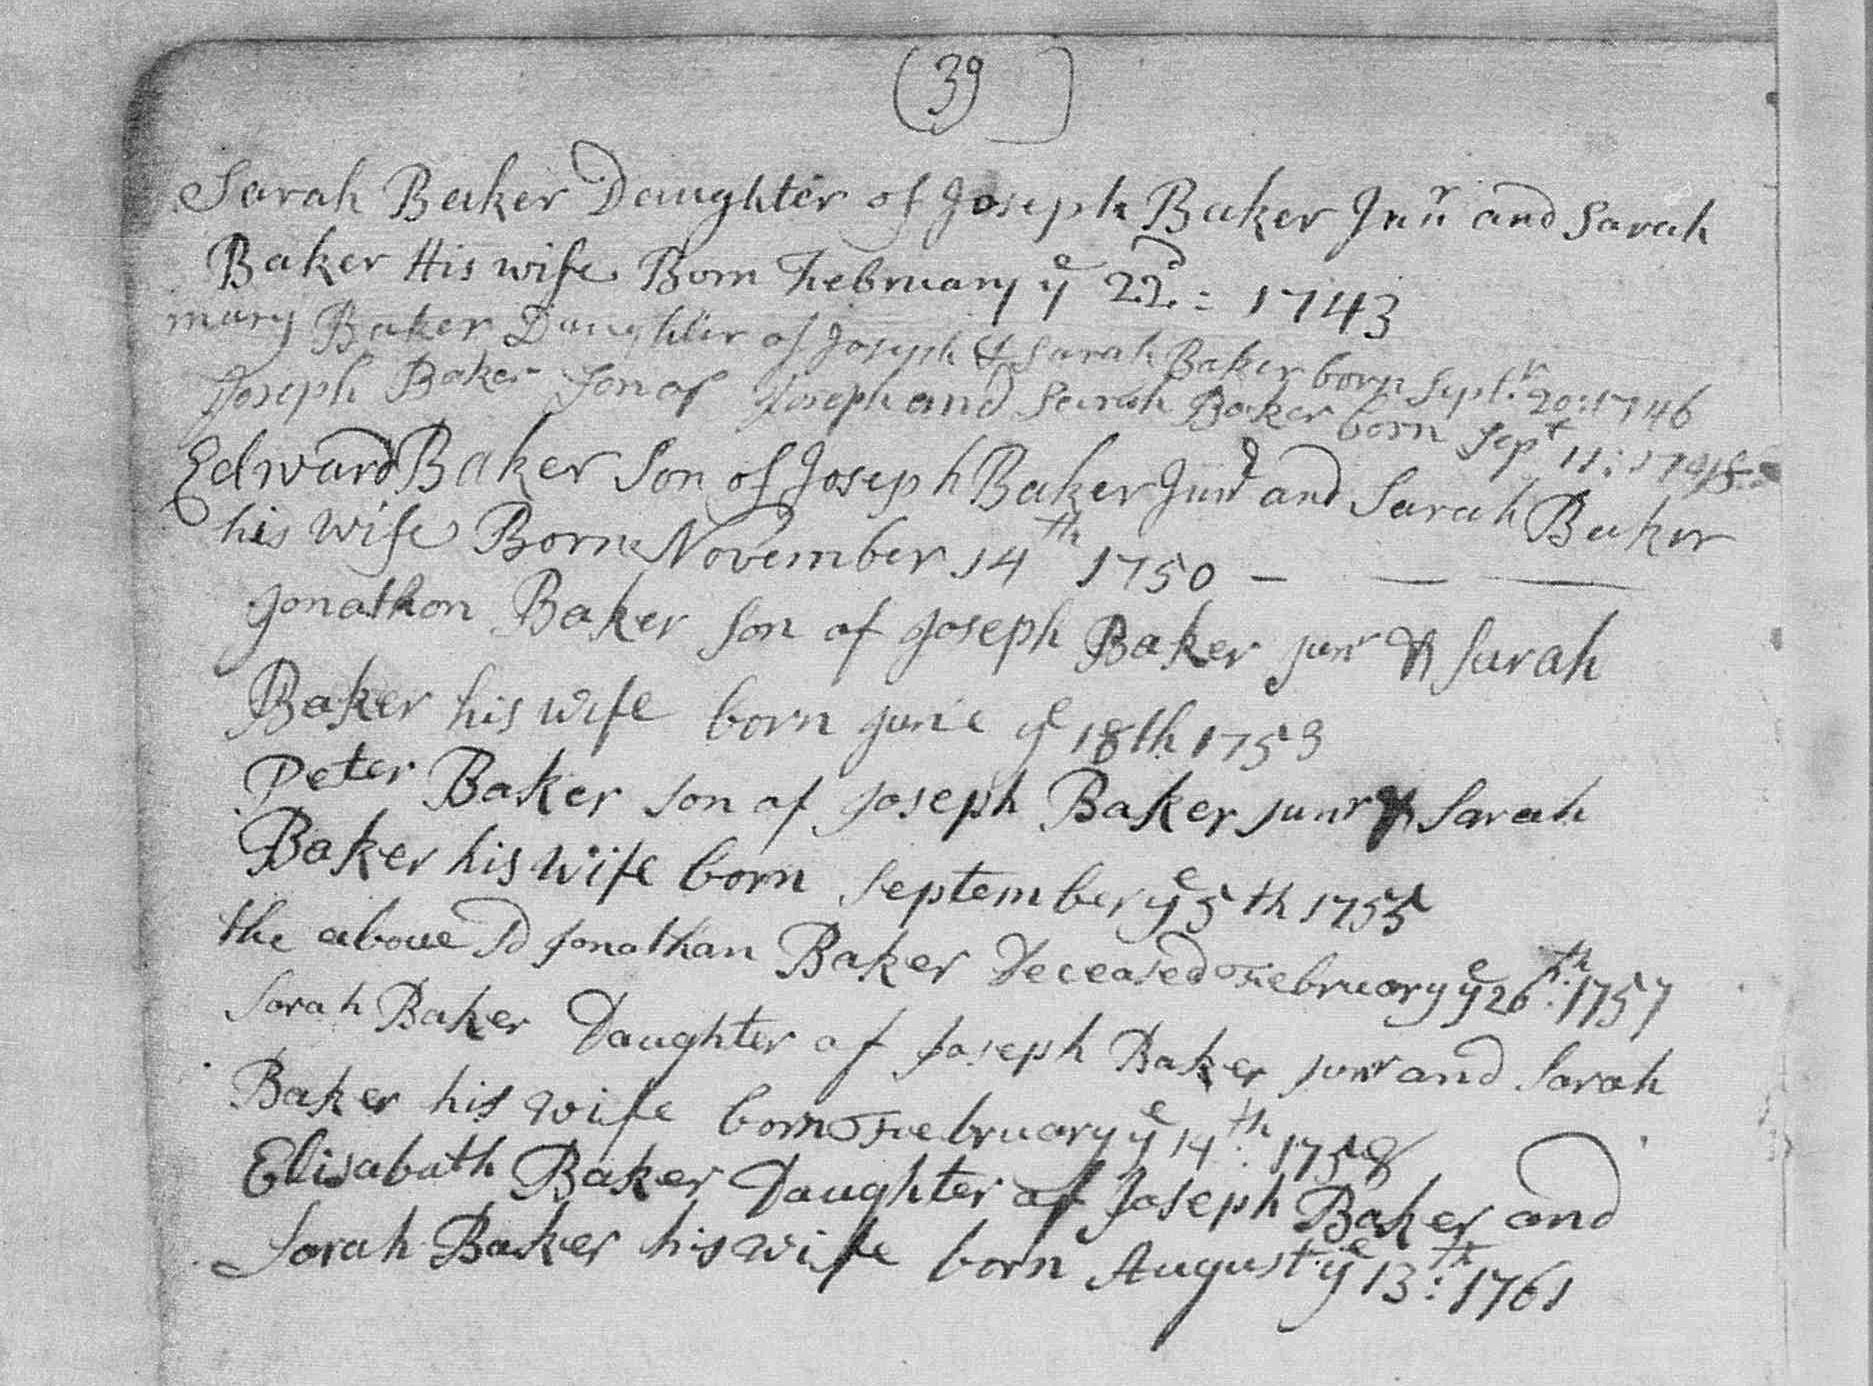 (39)
Sarah Baker Daughter of Joseph Baker Junr and Sarah
Baker His wife Born February ye 22d: 1743
mary Baker Daughter of Joseph & Sarah Baker born Septr 20: 1746
Joseph Baker Son of Joseph and Sarah Baker born Sept 11: 1748
Edward Baker Son of Joseph Baker Junr and Sarah Baker
his wife Born November 14th 1750 — — —
Jonathon Baker Son of Joseph Baker junr & Sarah
Baker his wife born june ye 18th 1753
Peter Baker son of Joseph Baker junr & Sarah
Baker his wife born September ye 5th 1755
the above sd Jonathan Baker Deceased February ye 26th: 1757
Sarah Baker Daughter of Joseph Baker junr and Sarah
Baker his wife born February ye 14th: 1758
Elisabath Baker Daughter of Joseph Baker and
Sarah Baker his wife born August ye 13th: 1761